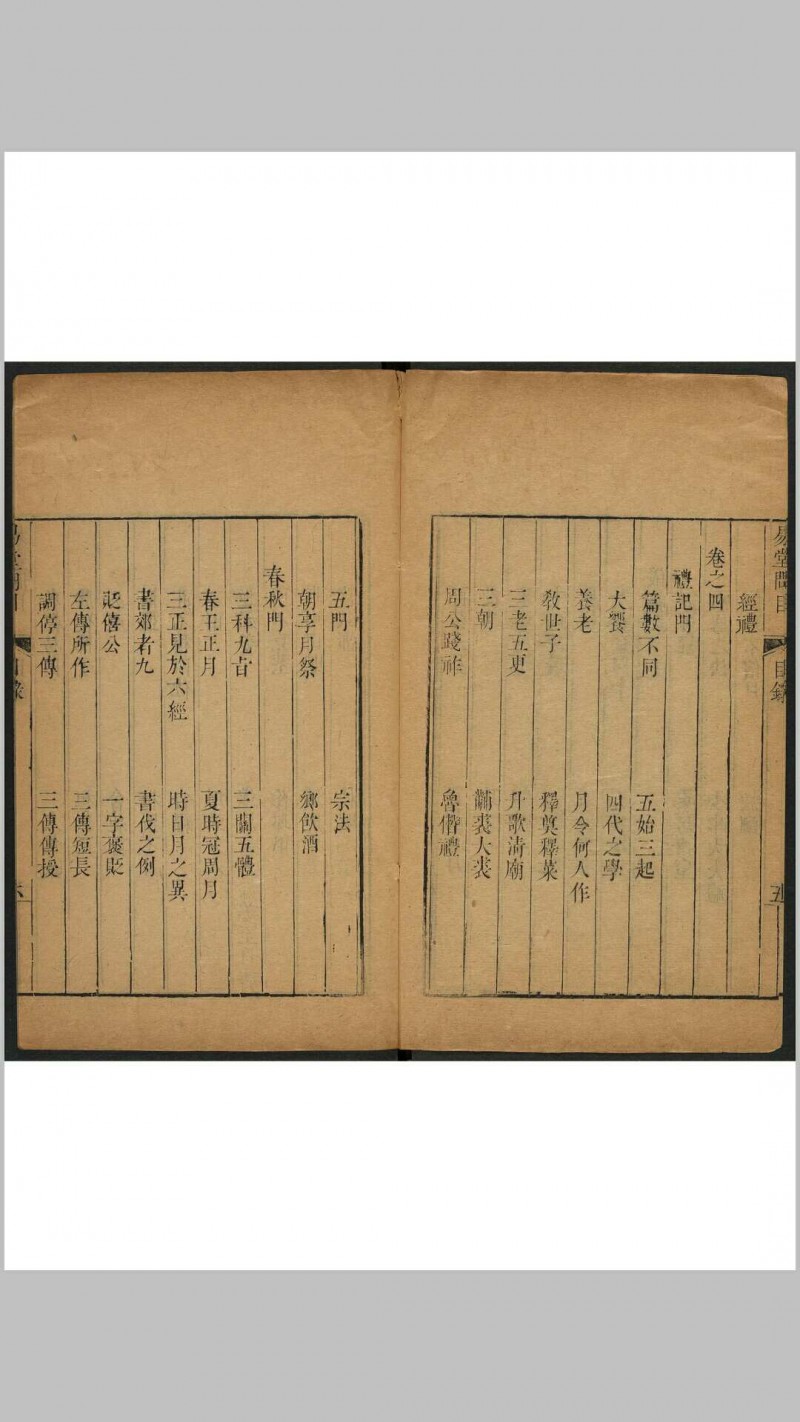 易堂問目
目錄
五
經禮
卷之四
禮記門
篇數不同 五始三起
大饗 四代之學
養老 月令何人作
教世子 釋奠釋菜
三老五更 升歌清廟
三朝 黼裘大裘
周公踐祚 魯僭禮
五門 宗法
朝享月祭 鄉飲酒
春秋門
三科九旨 三闕五體
春王正月 夏時冠周月
三正見於六經 時日月之異
書郊者九 書伐之例
貶僖公 一字褒貶
左傳所作 三傳短長
調停三傳 三傳傳授
易堂問目
目錄
六